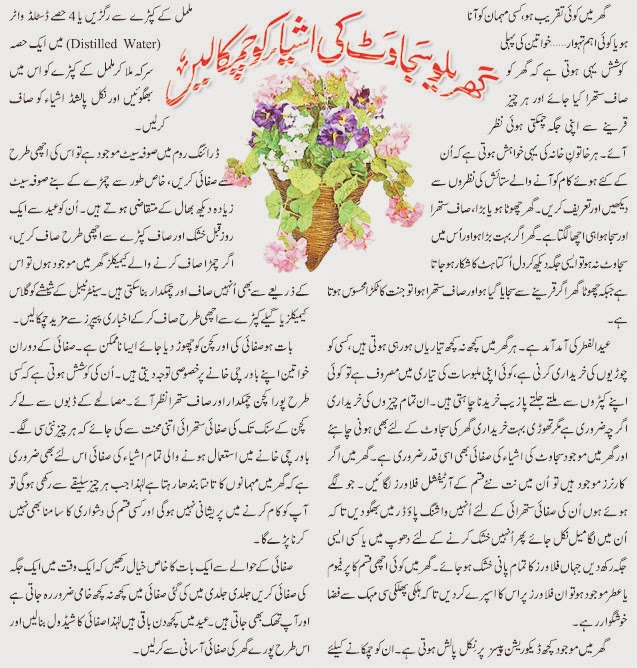 گھریلو سجاوٹ کی اشیاء کو چمکا لیں
گھر میں کوئی تقریب ہو، کسی مہمان کو آنا
ہو یا کوئی اہم تہوار......خواتین کی پہلی
کوشش یہی ہوتی ہے کہ گھر کو
صاف ستھرا کیا جائے اور ہر چیز
قرینے سے اپنی جگہ چمکتی ہوئی نظر
آئے۔ ہر خاتونِ خانہ کی یہی خواہش ہوتی ہے کہ اُن
کے کئے ہوئے کام کو آنے والے ستائش کی نظروں سے
دیکھیں اور تعریف کریں۔ گھر چھوٹا ہو یا بڑا، صاف ستھرا
اور سجا ہوا ہی اچھا لگتا ہے۔ گھر اگر بہت بڑا ہو اور اُس میں
سجاوٹ نہ ہو تو ایسی جگہ دیکھ کر دل اُکتاہٹ کا شکار ہو جاتا
ہے جبکہ چھوٹا گھر اگر قرینے سے سجایا گیا ہو اور صاف ستھرا ہو تو جنت کا ٹکڑا محسوس ہوتا
ہے۔
عیدالفطر کی آمد آمد ہے۔ ہر گھر میں کچھ نہ کچھ تیاریاں ہو رہی ہوتی ہیں، کسی کو
چوڑیوں کی خریداری کرنی ہے، کوئی اپنی ملبوسات کی تیاری میں مصروف ہے تو کوئی
اپنے کپڑوں سے ملتے جلتے پازیب خریدنا چاہتی ہیں۔ ان تمام چیزوں کی خریداری
اگرچہ ضروری ہے مگر تھوڑی بہت خریداری گھر کی سجاوٹ کے لئے بھی ہونی چاہئے
اور گھر میں موجود سجاوٹ کی اشیاء کی صفائی بھی اسی قدر ضروری ہے۔ گھر میں اگر
کارنرز موجود ہیں تو اُن میں نت نئے قسم کے آرٹیفشل فلاورز لگائیں۔ جو لگے
ہوئے ہوں اُن کی صفائی ستھرائی کے لئے اُنہیں واشنگ پاؤڈر میں بھگو دیں تاکہ
اُن میں لگا میل نکل جائے پھر اُنہیں خشک کرنے کے لئے دھوپ میں یا کسی ایسی
جگہ رکھ دیں جہاں فلاورز کا تمام پانی خشک ہو جائے۔ گھر میں کوئی اچھی قسم کا پرفیوم
یا عطر موجود ہو تو ان فلاورز پر اس کا اسپرے کر دیں تاکہ ہلکی پھلکی سی مہک سے فضا
خوشگوار رہے۔
گھر میں موجود کچھ ڈیکوریشن پیسز پر نکل پالش ہوتی ہے۔ ان کو چمکانے کیلئے
ململ کے کپڑے سے رگڑیں یا 4 حصے ڈسٹلڈ واٹر
(Distilled Water) میں ایک حصہ
سرکہ ملا کر ململ کے کپڑے کو اس میں
بھگوئیں اور نکل پالشڈ اشیاء کو صاف
کر لیں۔
ڈرائنگ روم میں صوفہ سیٹ موجود ہے تو اس کی اچھی طرح
سے صفائی کریں، خاص طور سے چمڑے کے بنے صوفہ سیٹ
زیادہ دیکھ بھال کے متقاضی ہوتے ہیں۔ اُن کو عید سے ایک
روز قبل خشک اور صاف کپڑے سے اچھی طرح صاف کریں،
اگر چمڑا صاف کرنے والے کیمیکلز گھر میں موجود ہوں تو اس
کے ذریعے سے بھی اُنہیں صاف اور چمکدار بنا سکتی ہیں۔ سینٹر ٹیبل کے شیشے کو گلاس
کیمیکلز یا گیلے کپڑے سے اچھی طرح صاف کر کے اخباری پیپرز سے مزید چمکا لیں۔
بات ہو صفائی کی اور کچن کو چھوڑ دیا جائے ایسا ناممکن ہے۔ صفائی کے دوران
خواتین اپنے باورچی خانے پر خصوصی توجہ دیتی ہیں۔ اُن کی کوشش ہوتی ہے کہ کسی
طرح پورا کچن چمکدار اور صاف ستھرا نظر آئے۔ مصالحے کے ڈبوں سے لے کر
کچن کے سنک تک کی صفائی ستھرائی اتنی محنت سے کی جائے کہ ہر چیز نئی سی لگے۔
باورچی خانے میں استعمال ہونے والی تمام اشیاء کی صفائی اس لئے بھی ضروری
ہے کہ گھر میں مہمانوں کا تانتا بندھا رہتا ہے لہٰذا جب ہر چیز سلیقے سے رکھی ہو گی تو
آپ کو کام کرنے میں پریشانی نہیں ہو گی اور کسی قسم کی دشواری کا سامنا بھی نہیں
کرنا پڑے گا۔
صفائی کے حوالے سے ایک بات کا خاص خیال رکھیں کہ ایک وقت میں ایک جگہ
کی صفائی کریں جلدی جلدی میں کی گئی صفائی میں کچھ نہ کچھ خامی ضرور رہ جاتی ہے
اور آپ تھک بھی جاتی ہیں۔ عید میں کچھ دن باقی ہیں لہٰذا صفائی کا شیڈول بنا لیں اور
اس طرح پورے گھر کی صفائی آسانی سے کر لیں۔